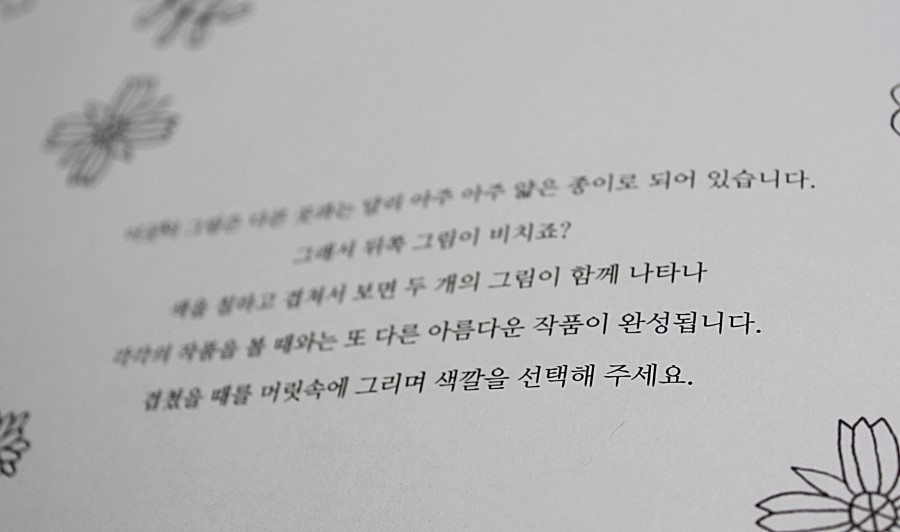 이곳의 그림은 다른 곳과는 달리 아주 아주 얇은 종이로 되어 있습니다.
그래서 뒤쪽 그림이 비치죠?
색을 칠하고 겹쳐서 보면 두 개의 그림이 함께 나타나
각각의 작품을 볼 때와는 또 다른 아름다운 작품이 완성됩니다.
겹쳤을 때를 머릿속에 그리며 색깔을 선택해 주세요.